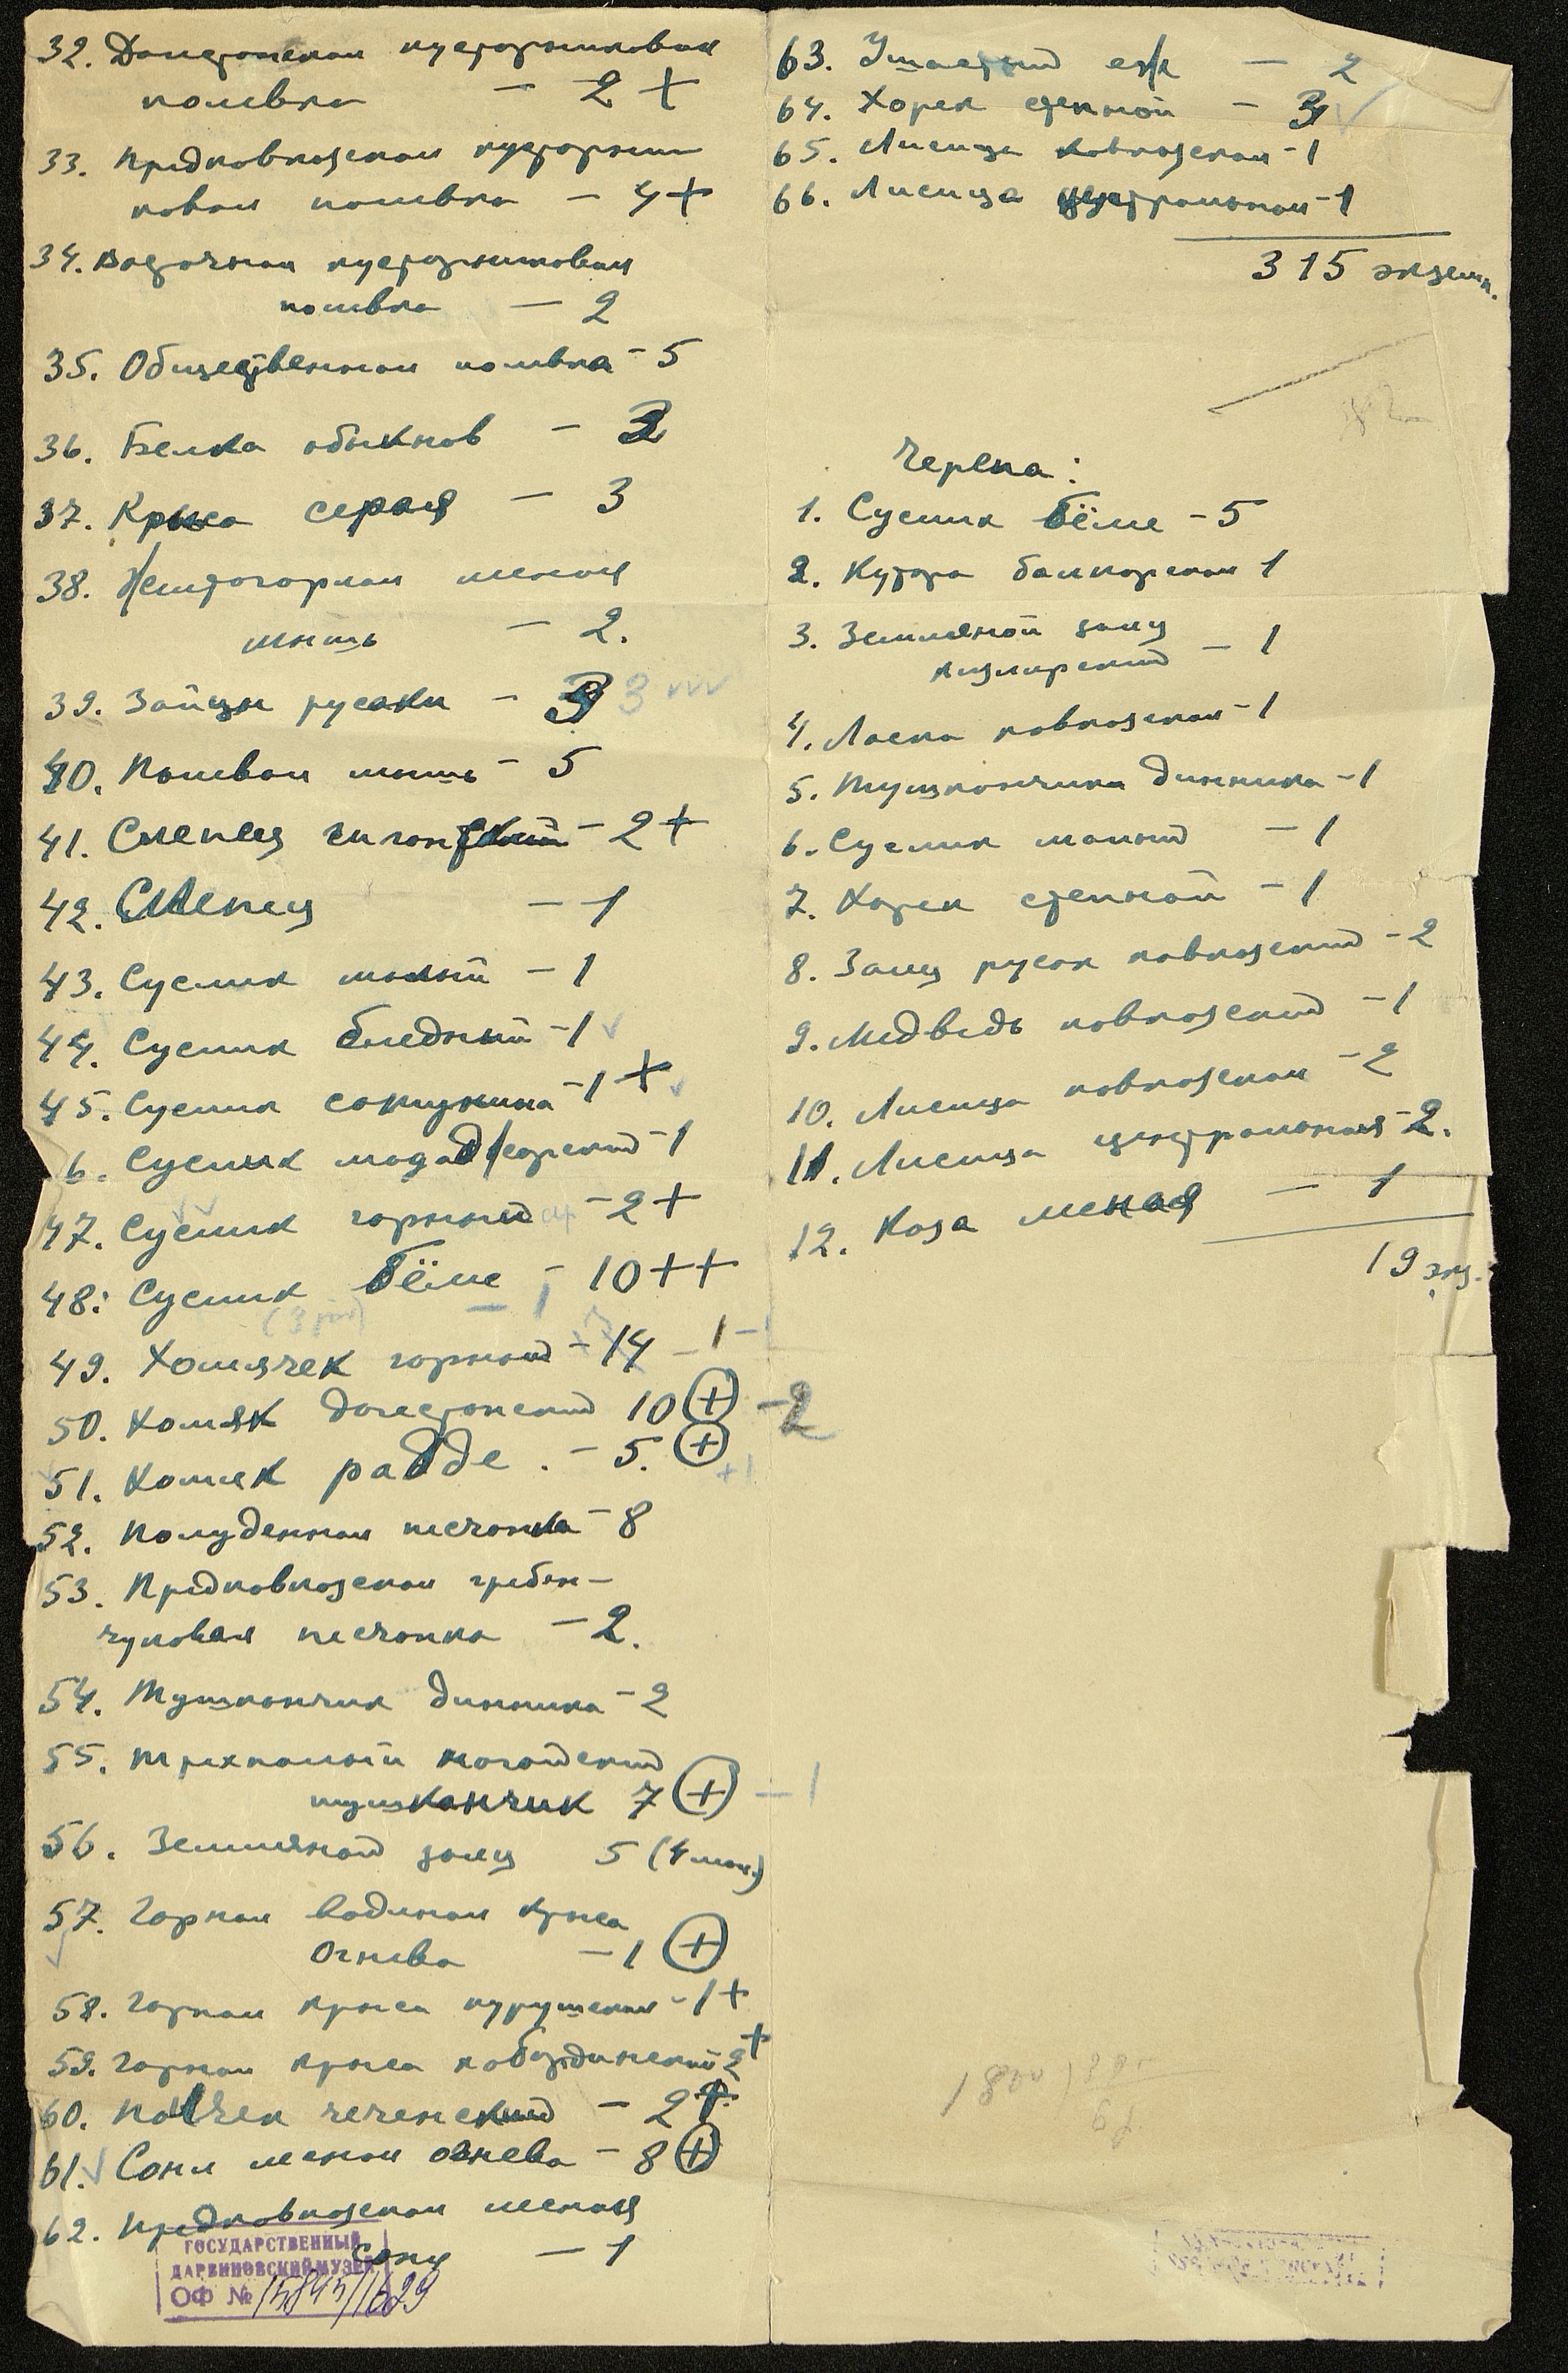 32. Дагестанская кустарниковая
полевка — 2 +
33. Предкавказская кустарни
ковая полевка — 4 +
34. восточная кустарниковая
полевка — 2
35. Общественная полевка - 5
36. Белка обыкнов — 3
37. Крыса серая — 3
38. Желтогорлая лесная
мышь — 2.
39. Зайцы русаки — 3 3
40. Полевая мышь - 5
41. Слепец гигантский - 2 +
42. Слепец — 1
43. Суслик малый - 1
44. Суслик бледный - 1
45. Суслик сатунина - 1 +
6. Суслик магаджарский - 1
47. Суслик горный - 2 +
48. Суслик Бёме - 10 + +
49. Хомячек горный - 14 - 1 - 1
50. Хомяк дагестанский 10 + - 2
51. Хомяк радде . - 5. + +1
52. Полуденная песчанка - 8
53. Предкавказская гребен-
чуковая песчанка - 2.
54. Тушканчик динника - 2
55. трехпалый ногайский
тушканчик 7 + - 1
56. Земляной заяц 5 (4 мол.)
57. Горная водяная крыса
Огнева - 1 +
58. Горная крыса курушская - 1 +
59. Горная крыса кабардинский 2 +
60. Полчек чеченский - 2 +
61. Соня лесная огнева - 8 +
62. Предкавказская лесная
соня — 1
ГОСУДАРСТВЕННЫЙ
ДАРВИНОВСКИЙ МУЗЕЙ
ОФ № 15845/1629
63. Ушастый еж — 2
64. Хорек степной - 3
65. Лисица кавказская - 1
66. Лисица центральная - 1
315 экземп.
Черепа:
1. Суслик Бёме - 5
2. Кутора балкарская 1
3. Земляной заяц
кизлярский - 1
4. Ласка кавказская - 1
5. Тушканчика динника - 1
6. Суслик малый - 1
7. Хорек степной - 1
8. Заяц русак кавказский - 2
9. Медведь кавказский - 1
10. Лисица кавказская - 2
11. Лисица центральная - 2.
12. Коза лесная — 1
19 экз.